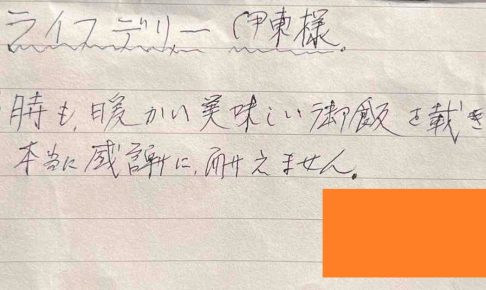 ライフデリー 伊東様.
時も、暖かい美味しい御飯を載き
本当に感謝に、耐えません。